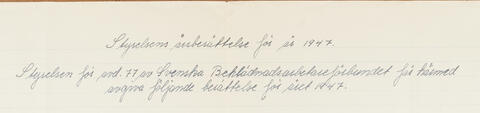 Styrelsens årsberättelse för år 1947.
Styrelsen för avd. 77 av Svenska Beklädnadsarbetareförbundet får härmed
avgiva följande berättelse för året 1947.